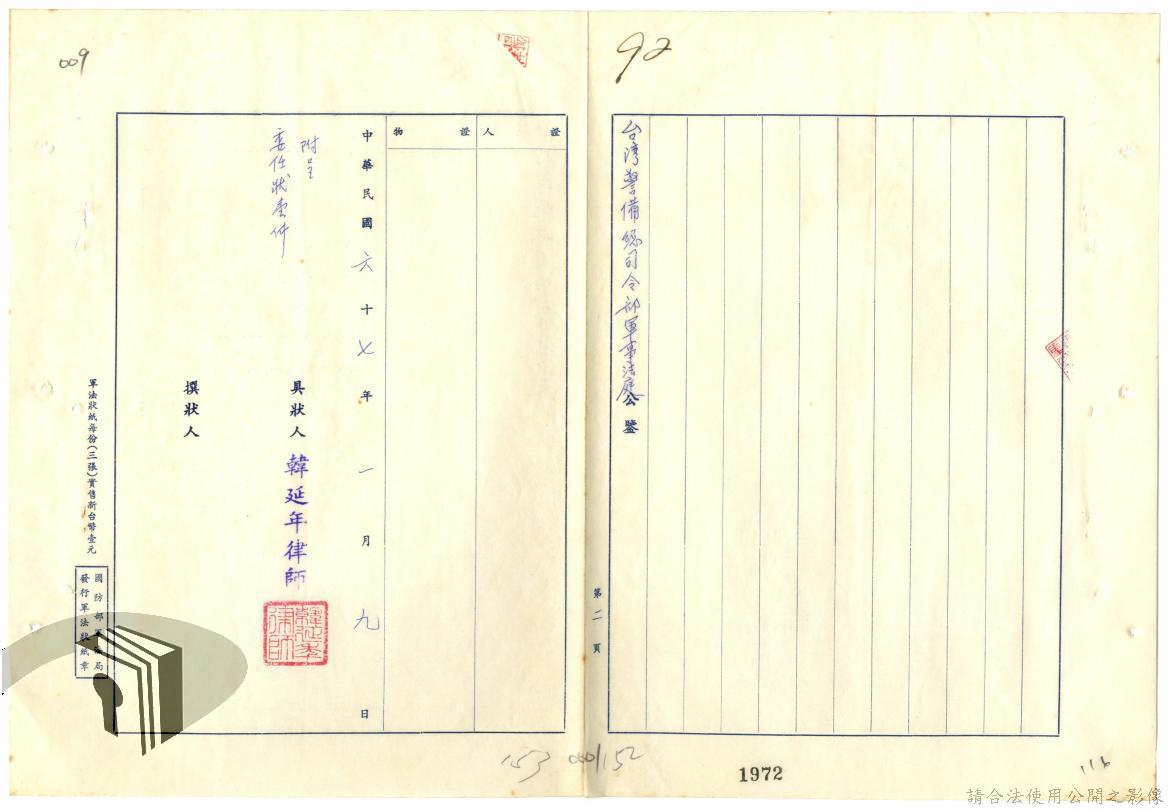 92
台湾警備總司令部軍事法庭公鑒
第二頁
1972
116
009
證人
證物
中華民國六十七年一月九日
附呈
委任狀壹件
具狀人 韓延年律師
韓延年律師
撰狀人
軍法狀紙每份(三張)實售新台幣壹元
國防部軍法局
發行軍法狀紙章
153
152
請合法使用公開之影像